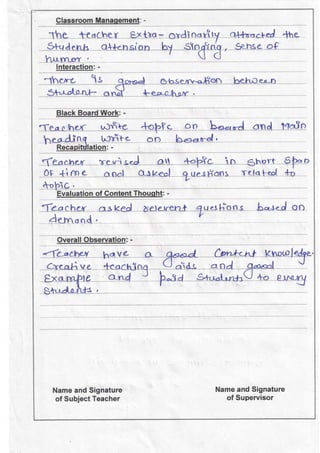 Classroom Management: -
The teacher Extra-ordinarily attracted the
Students attension by singing, sense of
humor.
Interaction: -
There is good observation between
Student and teacher.
Black Board Work: -
Teacher write topic on board and Main
heading write on board.
Recapitulation: -
Teacher revised all topic in short span
of time and asked questions related to
topic.
Evaluation of Content Thought: -
Teacher asked relevent questions based on
demand.
Overall Observation: -
Teacher have a good Content knowledge.
Creative teaching aids and good
Example and paid students to every
students.
Name and Signature
of Subject Teacher
Name and Signature
of Supervisor